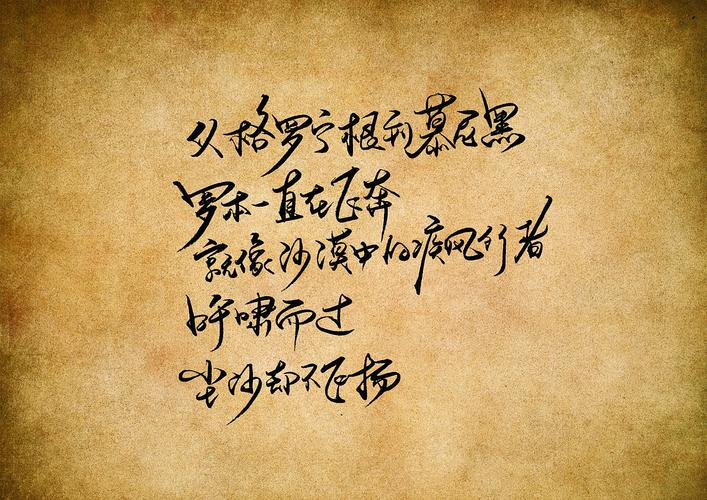 从格罗宁根到慕尼黑
罗本一直在飞奔
就像沙漠中的疾风行者
呼啸而过
尘沙却不飞扬